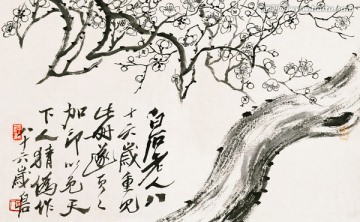 白石老人八
十六歲重見
此冊遂頁頁
加印以免天
下人猜偽作
八十六歲白石